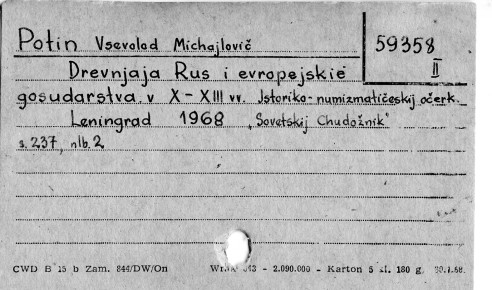 Potin Vsevolod Michajlovič
59358
II
Drevnjaja Rus i evropejskie
gosudarstva v X-XIII vv. Istoriko-numizmatičeskij očerk.
Leningrad 1968 „Sovetskij Chudožnik"
s. 237, nlb. 2
CWD B 15 b Zam. 844/DW/On - 2.090.000 - Karton 5 kl. 180 g.